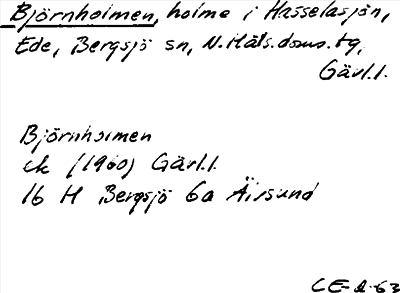 Björnholmen, holme i Hasselasjön,
Ede, Bergsjö sn, N. Häls. doms. tg,
Gävl.l.
Björnholmen
ek (1960) Gävl.l.
16 H Bergsjö 6a Älvsund
CE-2-63